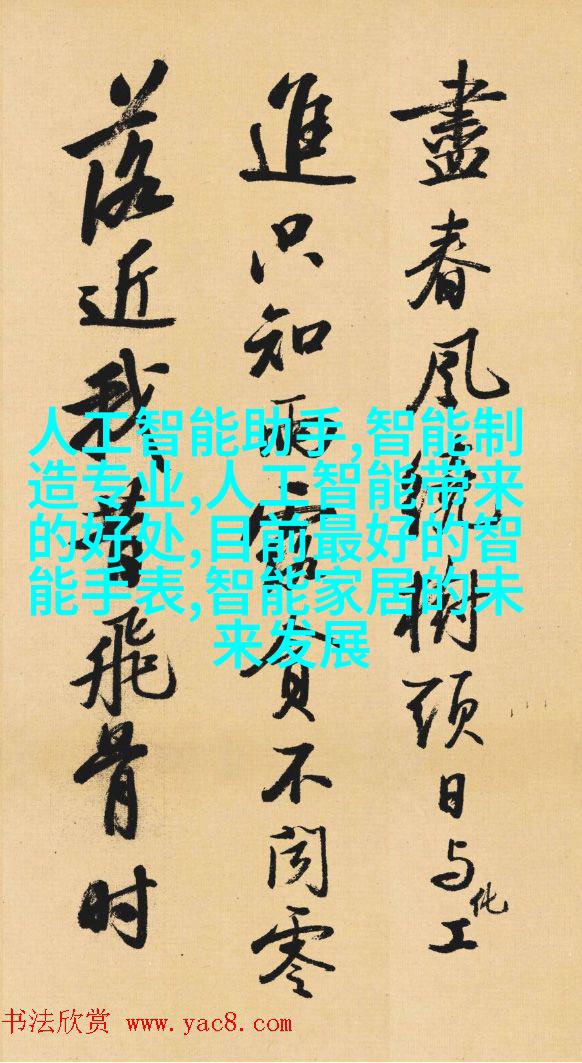 盡春風繞樹頭日与化工
進只知雨露貪不聞零
落近我昔飛骨时
人工智能助手,智能制
造专业,人工智能带来
的好处,目前最好的智
能手表,智能家居的未
来发展
书法欣赏 www.yac8.com